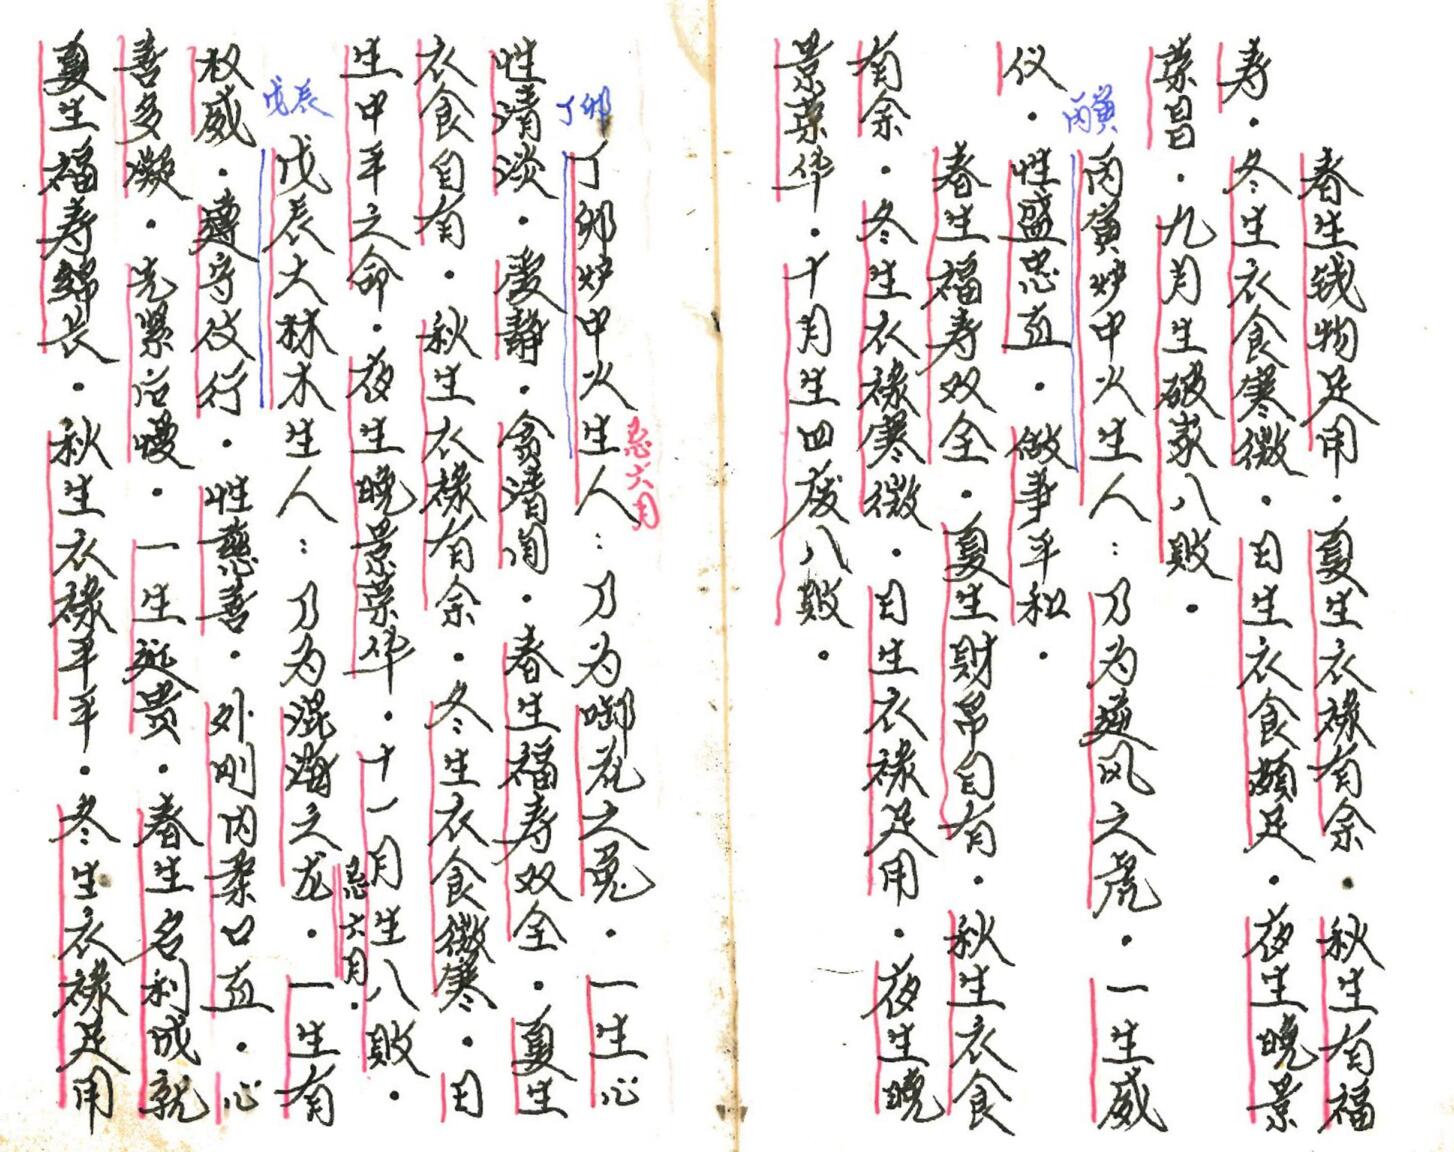 春生钱物足用．夏生衣禄有余．秋生有福
寿．冬生衣食寒微．日生衣食颇足．夜生晚景
荣昌．九月生破家八败．
丙寅
丙寅炉中火生人：乃为 风之虎．一生威
仪．性盛忠直．做事平和．
春生福寿双全．夏生财帛自有．秋生衣食
有余．冬生衣禄寒微．日生衣禄足用．夜生晚
景荣华．十月生四废八败．
丁卯
丁卯炉中火生人：乃为 花之兔．一生心
忌六月
性清淡．爱静．贪清闲．春生福寿双全．夏生
衣食自有．秋生衣禄有余．冬生衣食微寒．日
生中平之命．夜生晚景荣华．十一月生八败．
忌六月．
戊辰
戊辰大林木生人：乃为混海之龙．一生有
权威．遵守 行．性慈善．外刚内柔口直．心
善多凝．先紧后慢．一生近贵．春生名利成就
夏生福寿绵长．秋生衣禄平平．冬生衣禄足用